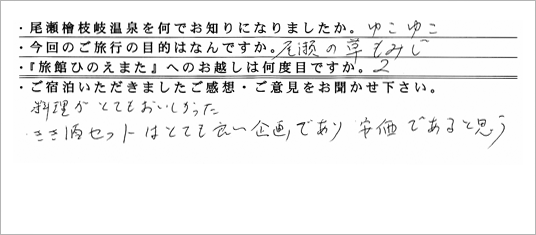 ・尾瀬檜枝岐温泉を何でお知りになりましたか。ゆこゆこ
・今回のご旅行の目的はなんですか。尾瀬の草もみじ
・『旅館ひのえまた』へのお越しは何度目ですか。2
・ご宿泊いただきましたご感想・ご意見をお聞かせ下さい。
料理がとてもおいしかった
きき酒セットはとても良い企画であり 安価であると思う